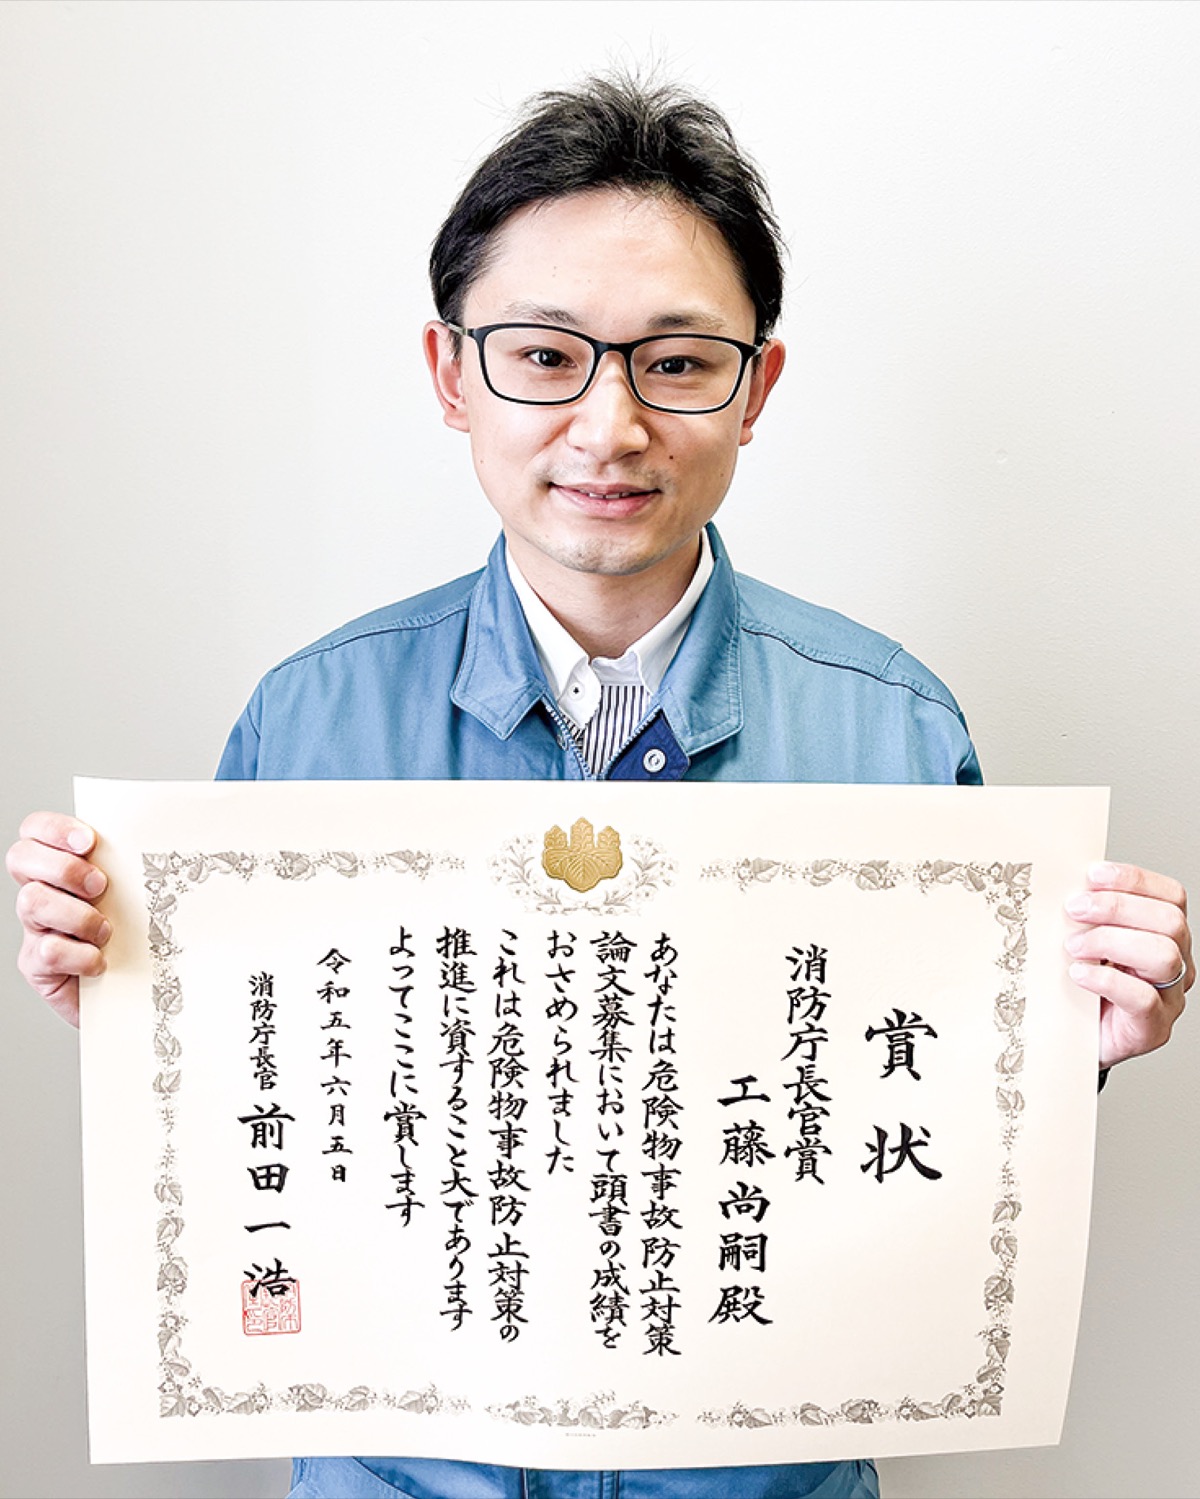 賞状
消防庁長官賞
工藤尚嗣殿
あなたは危険物事故防止対策
論文募集において頭書の成績を
おさめられました
これは危険物事故防止対策の
推進に資すること大であります
よってここに賞します
令和五年六月五日
消防庁長官 前田一浩